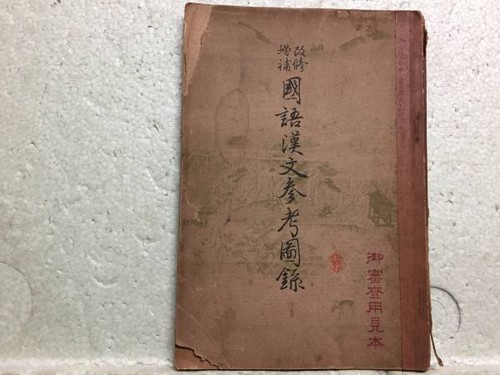 改修
増補
國語漢文參考圖錄
御審査用見本